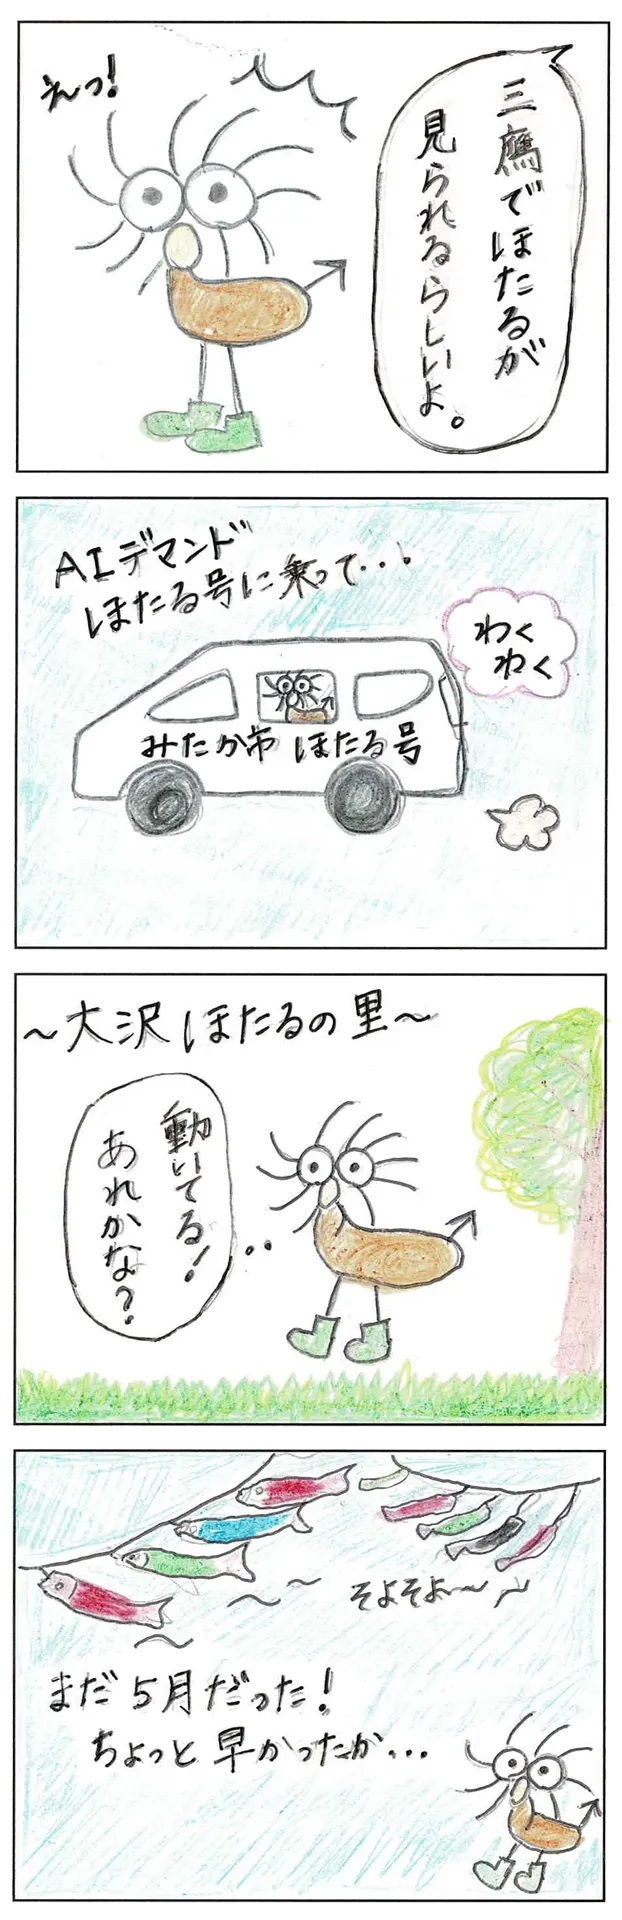 三鷹でほたるが
見られるらしいよ。
えっ!
AIデマンド
ほたる号に乗って・・・
わく
わく
みたか市 ほたる号
～大沢ほたるの里～
動いてる!
あれかな?
そよそよ〜
まだ5月だった!
ちょっと早かったか・・・